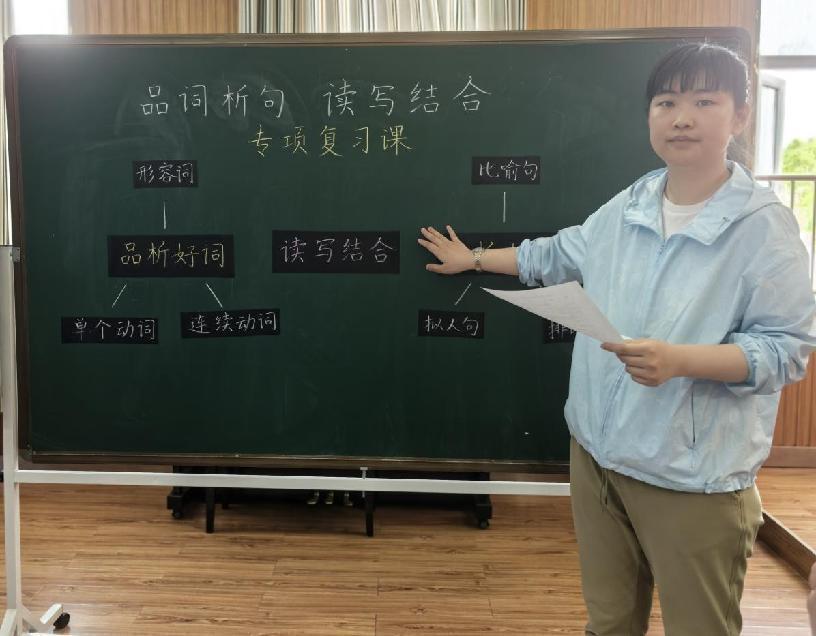 品词析句 读写结合
专项复习课
形容词
比喻句
品析好词
读写结合
析
单个动词
连续动词
拟人句
排